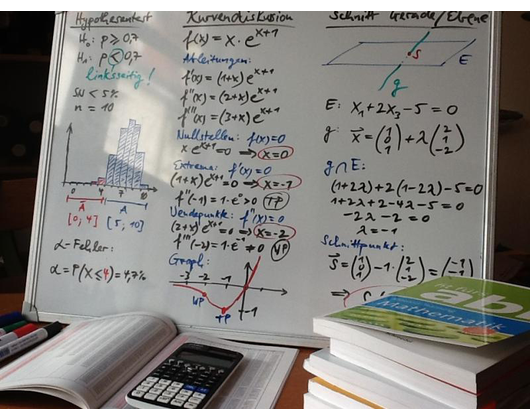 Hypothesentest
H₀: p ≥ 0,7
H₁: p < 0,7
linksseitig!
SN < 5%
n = 10
4 7 10
Ā A
[0, 4] [5, 10]
α-Fehler:
α = P(X ≤ 4) = 4,7%
Kurvendiskussion
f(x) = x · e^(x+1)
Ableitungen:
f'(x) = (1+x) e^(x+1)
f''(x) = (2+x) e^(x+1)
f'''(x) = (3+x) e^(x+1)
Nullstellen: f(x) = 0
x e^(x+1) = 0 ⇒ x = 0
Extrema: f'(x) = 0
(1+x) e^(x+1) = 0 ⇒ x = -1
f''(-1) = 1 · e⁰ > 0 TP
Wendepunkte: f''(x) = 0
(2+x) e^(x+1) = 0 ⇒ x = -2
f'''(-2) = 1 · e⁻¹ ≠ 0 WP
Graph:
-3 -2 -1
WP
TP
-1
Schnitt Gerade/Ebene
S
E
g
E: x₁ + 2x₃ - 5 = 0
g: x⃗ = (1 0 1) + λ (2 1 -2)
g ∩ E:
(1+2λ) + 2(1-2λ) - 5 = 0
1 + 2λ + 2 - 4λ - 5 = 0
-2λ - 2 = 0
λ = -1
Schnittpunkt:
abi
Mathematik